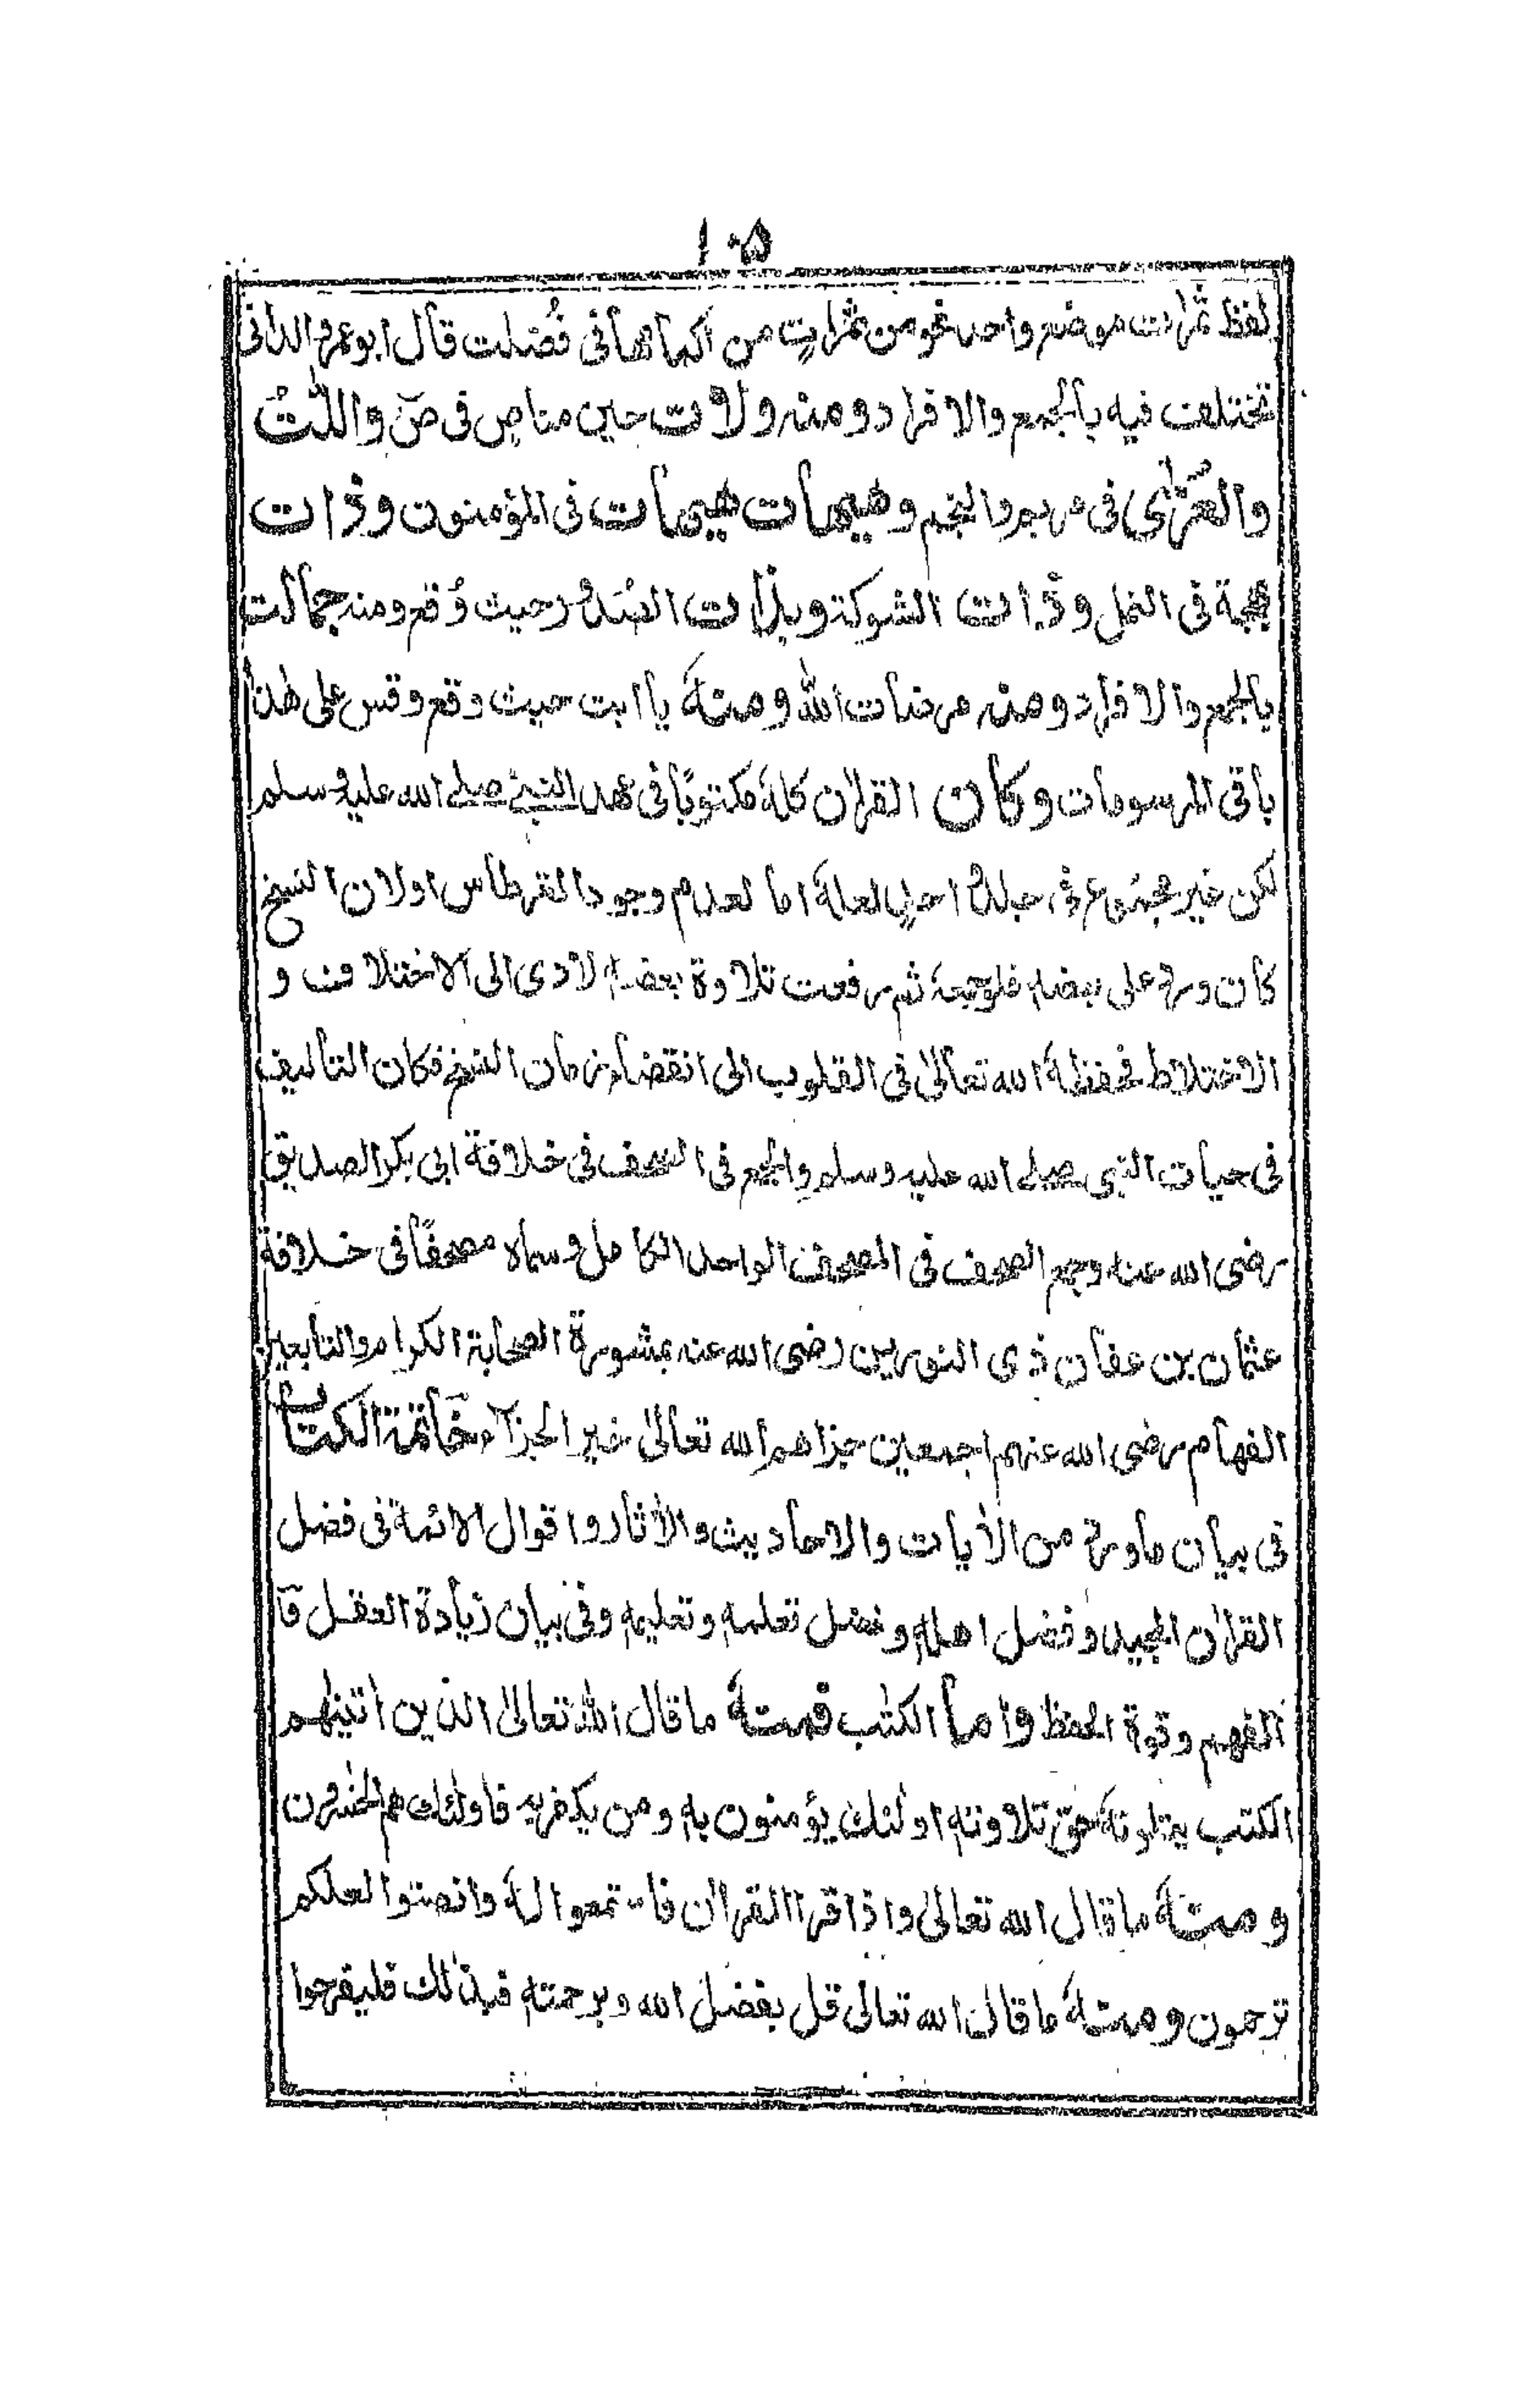 ١٠٥
لفظ ثمرات موضع واحد نحو من ثمراتٍ من اكمامها فى فُصّلت قال ابو عمرو الدانى
تختلف فيه بالجمع والافراد ومنه ولات حين مناص فى صٓ واللّٰتَ
والعُزّٰى فى سورة والنجم وهيهات هيهات فى المؤمنون وذات
بهجة فى النمل وذات الشوكة وبذات الصُدور حيث وُقع ومنه جمالت
بالجمع والافراد ومنه مرضات الله ومنهُ ياابت حيث وقع وقس على هٰذا
باقى المرسومات وكان القرآن كلهُ مكتوبًا فى عهد النبىّ صلے الله عليه وسلم
لكن غير مجتمع فى جلدٍ احدٍ لعلة اما لعدم وجود القرطاس او لان النسخ
كان ورد على بعضه فلو جمعهٗ ثم رفعت تلاوة بعضه لادى الى الاختلاف و
الاختلاط فحفظهُ الله تعالىٰ فى القلوب الى انقضاء زمان النسخ فكان التأليف
فى حيات النبى صلے الله عليه وسلم والجمع فى الصحف فى خلافة ابى بكر الصديق
رضى الله عنه وجمع الصحف فى المصحف الواحد الكامل وسماه مصحفًا فى خلافة
عثمان بن عفان ذى النورين رضى الله عنه بمشورة الصحابة الكرام والتابعين
الفهام رضى الله عنهم اجمعين جزاهم الله تعالىٰ خير الجزآء خَاتمة الكتاب
فى بيان ماورد من الاٰيات والاحاديث والاٰثار واقوال الائمة فى فضل
القراٰن المجيد وفضل اهله وفضل تعلمه وتعليمه وفى بيان زيادة العقل و
الفهم وقوة الحفظ واما الكتٰب فمنهُ ما قال اللهُ تعالىٰ الذين اٰتينٰهم
الكتب يتلونهٗ حقّ تلاوته اولئك يؤمنون به ومن يكفر به فاولئك هم الخٰسرون
ومنهُ ما قال الله تعالىٰ واذا قرا القراٰن فاستمعوا لهُ وانصتوا لعلكم
ترحمون ومنهُ ما قال الله تعالىٰ قل بفضل الله وبرحمته فبذٰلك فليفرحوا